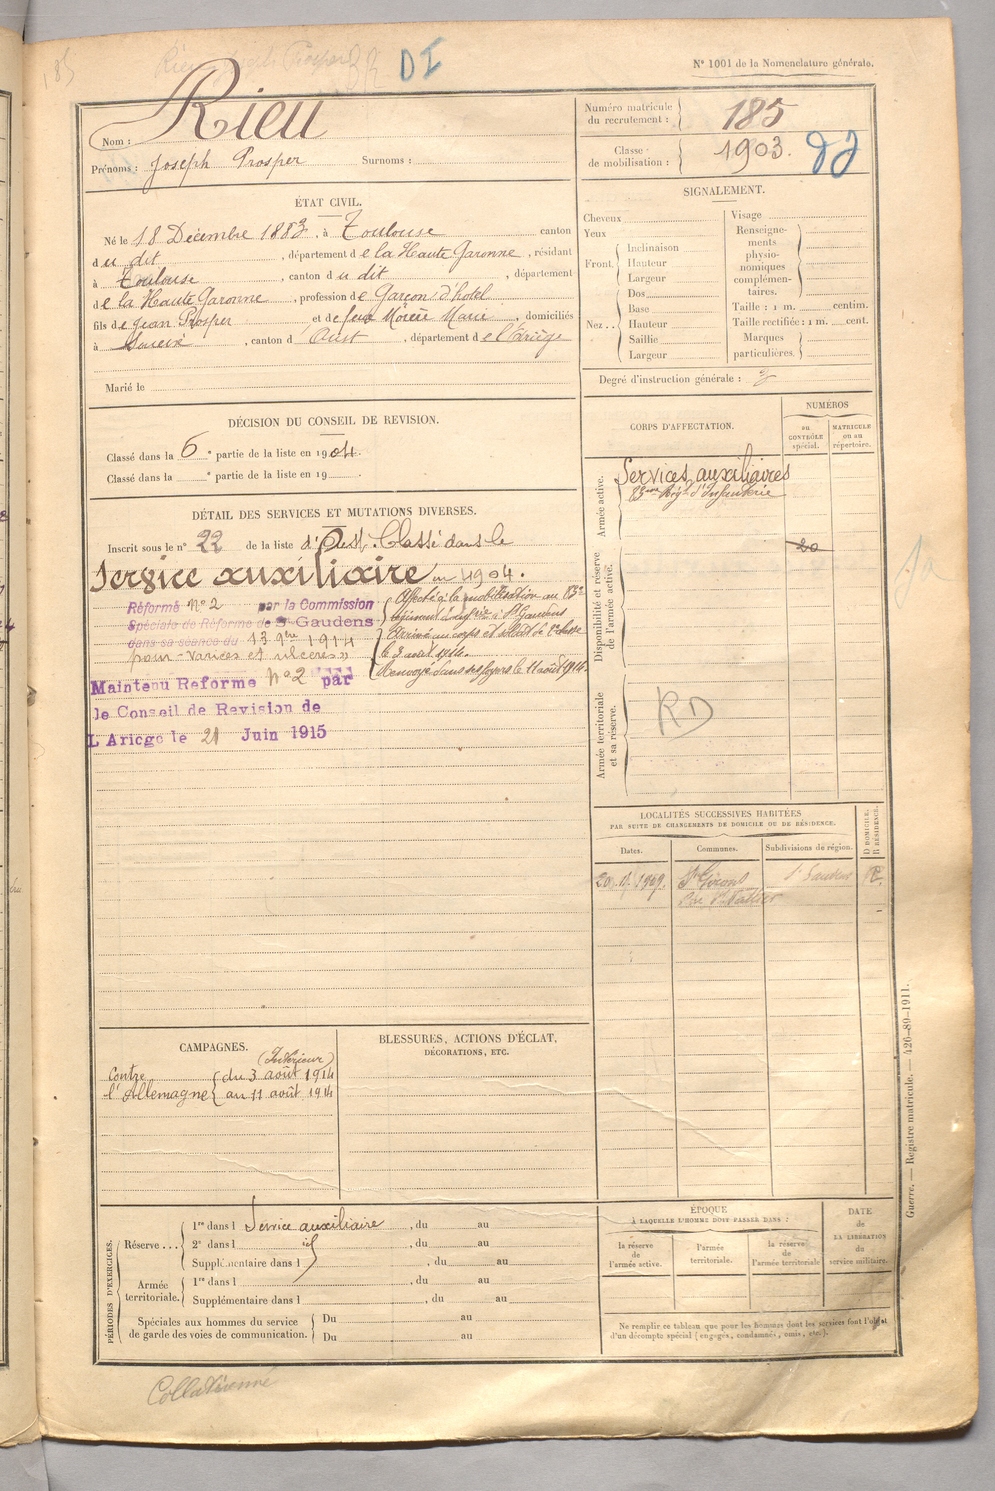 185
DI
N° 1001 de la Nomenclature générale.
Nom : Rieu
Prénoms : Joseph Prosper Surnoms :
Numéro matricule du recrutement : 185
Classe de mobilisation : 1903.
ÉTAT CIVIL.
Né le 18 Décembre 1883, à Toulouse canton
du dit, département de la Haute Garonne, résidant
à Toulouse, canton du dit, département
de la Haute Garonne, profession de Garçon d'hôtel
fils de Jean Prosper et de feue Marie, domiciliés
à, canton d' Oust, département de l'Ariège
Marié le
SIGNALEMENT.
Cheveux
Yeux
Front.
Inclinaison
Hauteur
Largeur
Nez..
Dos
Base
Hauteur
Saillie
Largeur
Visage
Renseignements physionomiques complémentaires.
Taille : 1 m. centim.
Taille rectifiée : 1 m. cent.
Marques particulières.
Degré d'instruction générale :
DÉCISION DU CONSEIL DE REVISION.
Classé dans la 6e partie de la liste en 1904.
Classé dans la e partie de la liste en 19
CORPS D'AFFECTATION.
NUMÉROS
au CONTRÔLE spécial.
MATRICULE ou au répertoire.
Armée active.
Services auxiliaires
83ème Régt d'Infanterie
20
Disponibilité et réserve de l'armée active.
Armée territoriale et sa réserve.
RD
DÉTAIL DES SERVICES ET MUTATIONS DIVERSES.
Inscrit sous le n° 22 de la liste d'Oust. Classé dans le
Service auxiliaire en 1904.
Réformé n° 2 par la Commission
Spéciale de Réforme de St Gaudens
dans sa séance du 13 9bre 1914
pour "Varices et ulcères"
Affecté à la mobilisation au 83e
régiment d'infrie à St Gaudens
Arrivé au corps et soldat de 2e classe
le 3 août 1914.
Renvoyé dans ses foyers le 11 août 1914.
Maintenu Réformé n° 2 par
le Conseil de Revision de
L'Ariège le 21 Juin 1915
LOCALITÉS SUCCESSIVES HABITÉES
PAR SUITE DE CHANGEMENTS DE DOMICILE OU DE RÉSIDENCE.
Dates. Communes. Subdivisions de région. D DOMICILE. R RÉSIDENCE.
1909. St Girons St Gaudens R.
CAMPAGNES.
(Intérieur)
Contre l'Allemagne
du 3 août 1914
au 11 août 1914
BLESSURES, ACTIONS D'ÉCLAT,
DÉCORATIONS, ETC.
PÉRIODES D'EXERCICES.
Réserve...
1re dans l Service auxiliaire, du au
2e dans l id, du au
Supplémentaire dans l, du au
Armée territoriale.
1re dans l, du au
Supplémentaire dans l, du au
Spéciales aux hommes du service de garde des voies de communication.
Du au
Du au
ÉPOQUE
À LAQUELLE L'HOMME DOIT PASSER DANS :
la réserve de l'armée active.
l'armée territoriale.
la réserve de l'armée territoriale
DATE de LA LIBÉRATION du service militaire.
Ne remplir ce tableau que pour les hommes dont les services font l'objet
d'un décompte spécial (engagés, condamnés, omis, etc.).
Guerre. — Registre matricule. — 426-89-1911.
Collationné